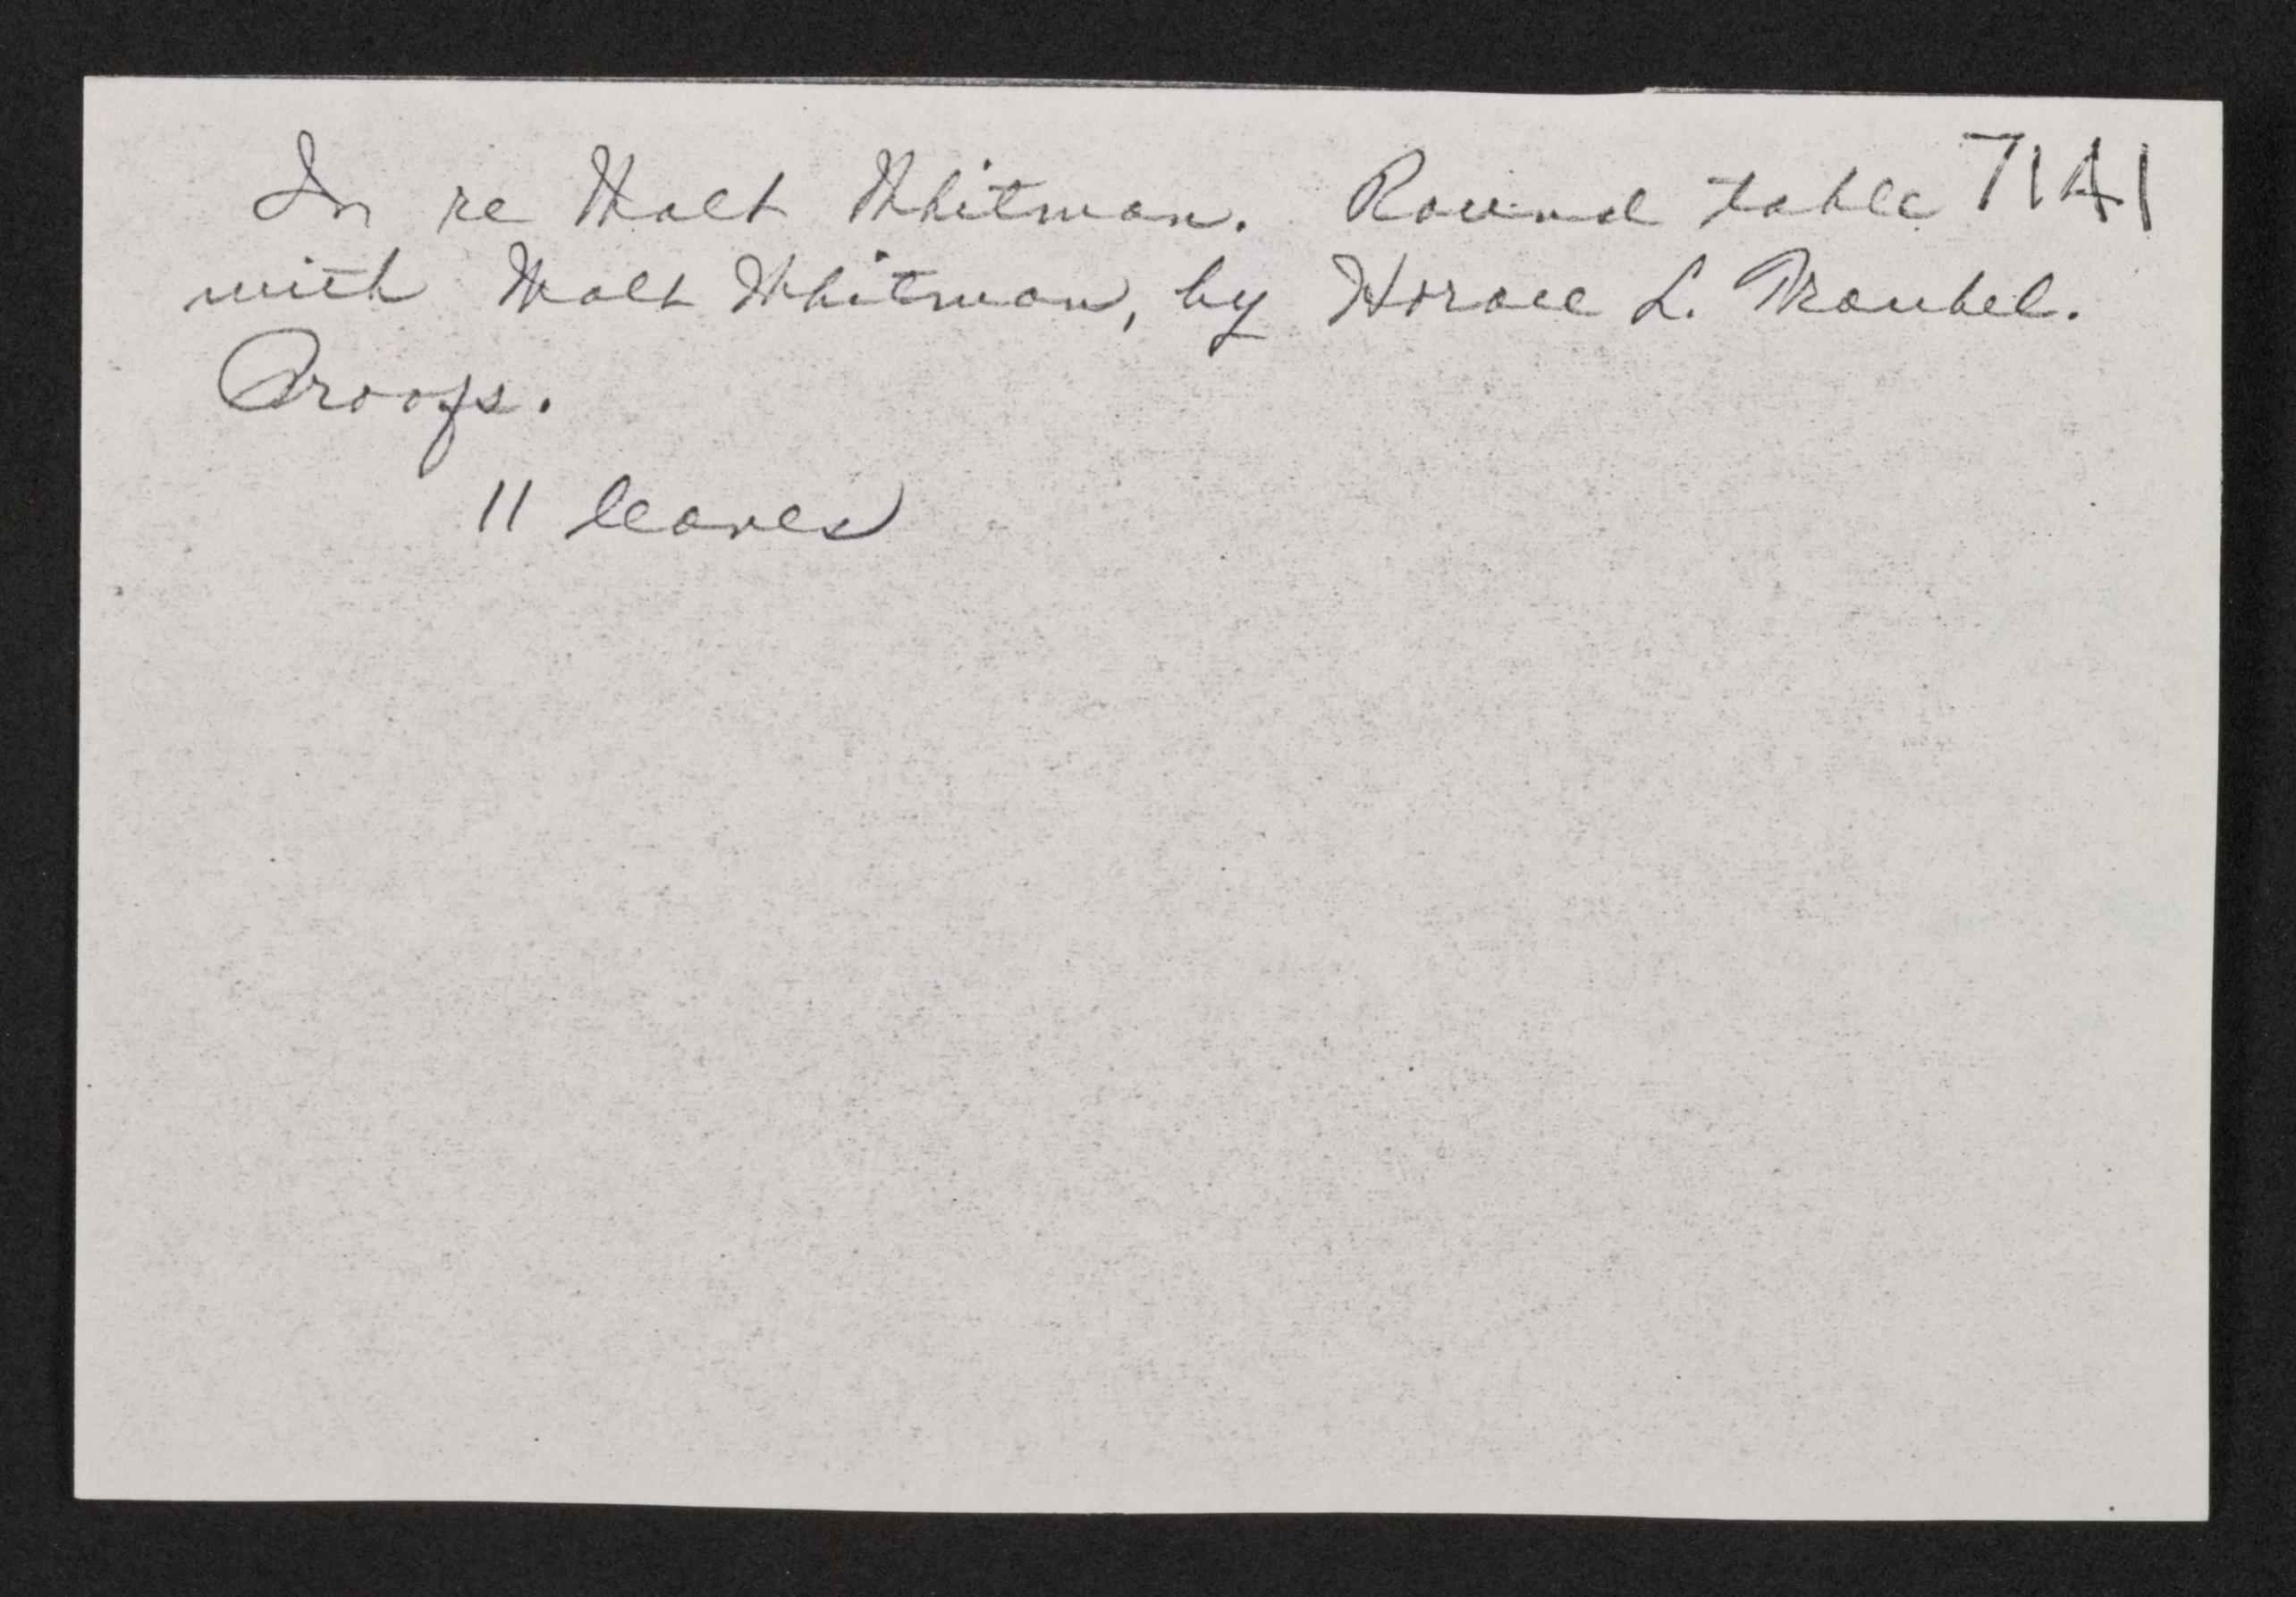 In re Walt Whitman. Round table 7141
with Walt Whitman, by Horace L. Traubel.
Proofs.
11 leaves